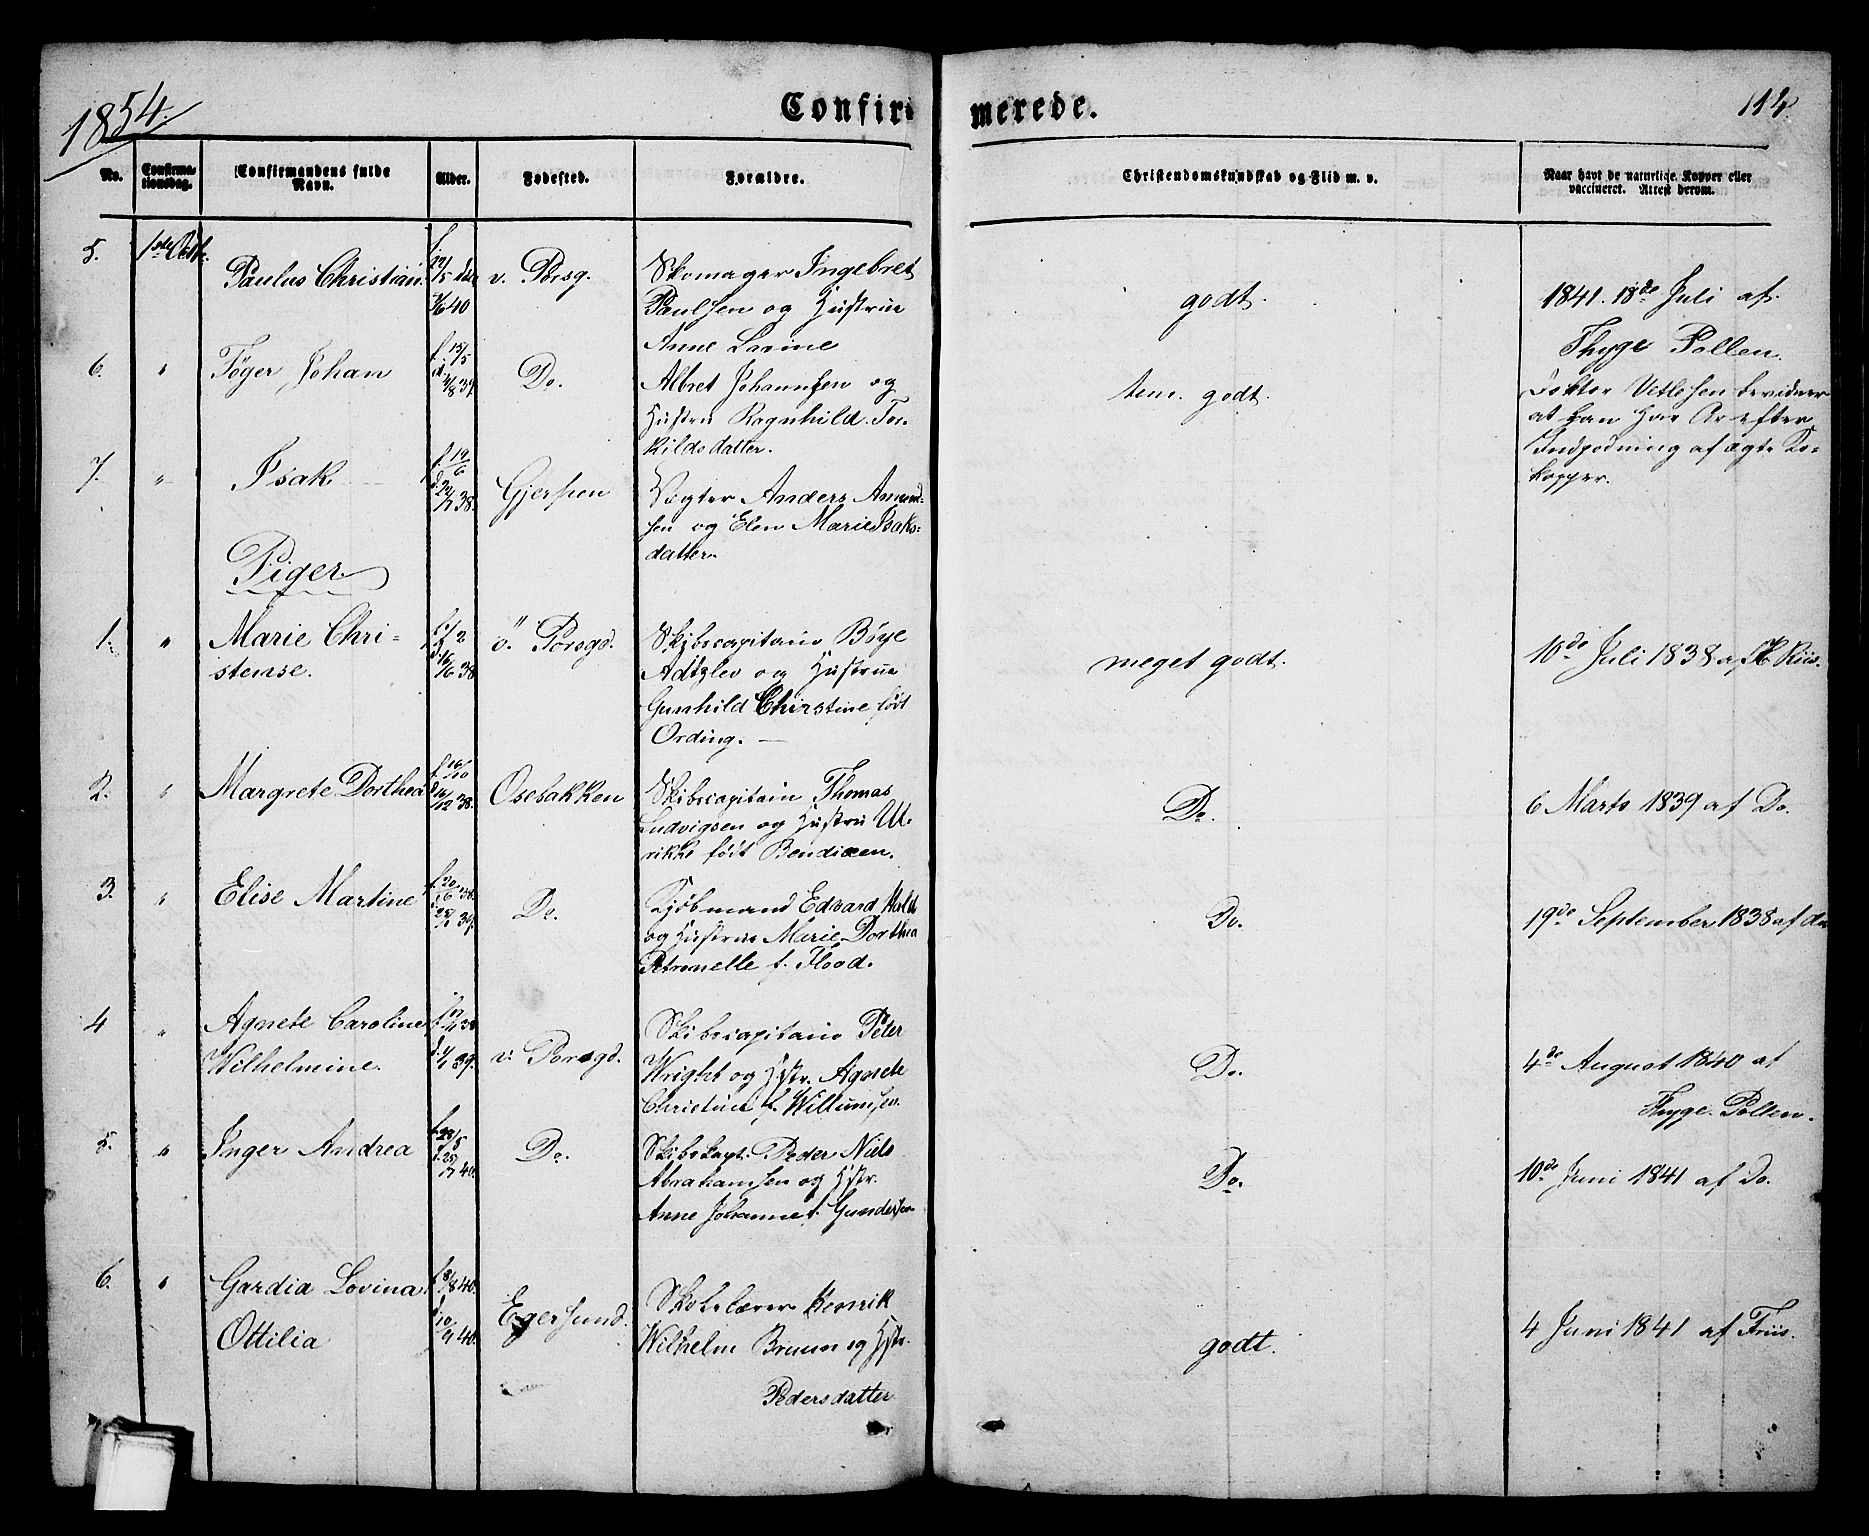 1854.
Confirmerede.
114.
No.
Confirmationsdag.
Confirmandens fulde Navn.
Alder.
Fødested.
Forældre.
Christendomskundskab og Flid m. v.
Naar havt de naturlige Kopper eller vaccineret. Attest derom.
5.
1ste Octbr.
Paulus Christian.
v. Porsg.
Skomager Ingebret
Paulsen og Hustrue
Anne Lovine
godt.
1841. 18de Juli af
Thyge Pollen.
6.
"
Tøger Johan
f. 15/5
Do.
Albret Johannsen og
Hustru Ragnhild Tor-
kildsdatter.
tem. godt.
Doktor Vetlesen bevidner
at han har Ar efter
Indpodning af ægte Ko-
kopper.
7.
"
Isak
f. 19/6
38.
Gjerpen
Vogter Anders Amund-
sen og Elen Marie Isaks-
datter
Piger
1.
"
Marie Chri-
stense.
38
ö. Porsgd.
Skibscapitain Bøye
Adtzlev og Hustrue
Gunhild Chirstine født
Ording.
meget godt.
10de Juli 1838 af Riis.
2.
"
Margrete Dorthea
f. 16/10
d. 16/12 38.
Osebakken
Skibscapitain Thomas
Ludvigsen og Hustru Ul-
rikke født Bendixen.
Do.
6 Marts 1839 af Do.
3.
"
Elise Martine
f. 20/6 38.
Do.
Kjøbmand Edvard Hald
og Hustrue Marie Dorthea
Petronelle f. Flood.
Do.
19de September 1838 af do
4
"
Agnete Caroline
Wilhelmine.
39.
v. Porsgd.
Skibscapitain Peter
Wright og Hstr. Agnete
Christine f. Willumsen.
Do.
4de August 1840 af
Thyge Pollen.
5.
"
Inger Andrea
40.
Do.
Skibskapt. Peder Niels
Abrahamsen og Hstr.
Anne Johanne f. Gundersen
Do.
10de Juni 1841 af Do.
6.
"
Gardia Lovina
Ottilia
f. 8/8 40.
d. 10/9 40.
Egersund.
Skolelærer Henrik
Wilhelm Bruun og Hstr.
Pedersdatter
godt.
4 Juni 1841 af Friis.